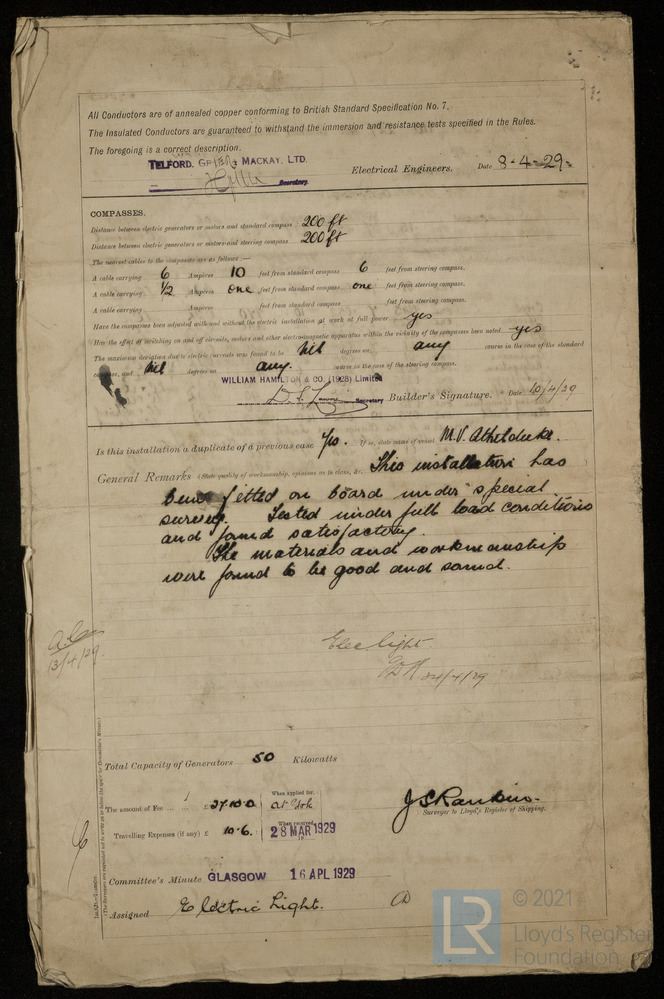 All Conductors are of annealed copper conforming to British Standard Specification No. 7.
The Insulated Conductors are guaranteed to withstand the immersion and resistance tests specified in the Rules.
The foregoing is a correct description.
TELFORD, GRIER & MACKAY, LTD.
Secretary. Electrical Engineers. Date 8-4-29.
COMPASSES.
Distance between electric generators or motors and standard compass 200 ft
Distance between electric generators or motors and steering compass 200 ft
The nearest cables to the compasses are as follows:—
A cable carrying 6 Amperes 10 feet from standard compass 6 feet from steering compass.
A cable carrying ½ Amperes one feet from standard compass one feet from steering compass.
A cable carrying Amperes feet from standard compass feet from steering compass.
Have the compasses been adjusted with and without the electric installation at work at full power yes
Has the effect of switching on and off circuits, motors and other electro-magnetic apparatus within the vicinity of the compasses been noted yes
The maximum deviation due to electric currents was found to be Nil degrees on any course in the case of the standard
compass, and Nil degrees on any. course in the case of the steering compass.
WILLIAM HAMILTON & CO. (1928) Limited
Secretary Builder's Signature. Date 10/4/29
Is this installation a duplicate of a previous case Yes. If so, state name of vessel M.V. Athelduke.
General Remarks (State quality of workmanship, opinions as to class, &c. This installation has
been fitted on board under special
survey. Tested under full load conditions
and found satisfactory.
The materials and workmanship
were found to be good and sound.
13/4/29
Elec light.
24/4/29
Total Capacity of Generators 50 Kilowatts
The amount of Fee £ 27.10.0 When applied for,
Travelling Expenses (if any) £ 10.6. When received, 28 MAR 1929
J S Rankin.
Surveyor to Lloyd's Register of Shipping.
Committee's Minute GLASGOW 16 APL 1929
Assigned Electric Light.
LR
© 2021
Lloyd's Register
Foundation